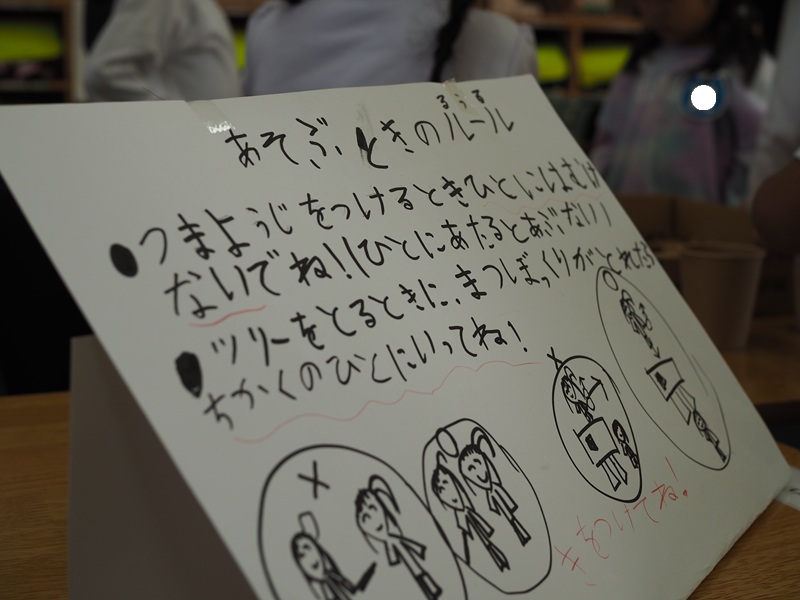 るうる
あそぶときのルール
●つまようじをつけるときひとにはむけ
ないでね!!(ひとにあたるとあぶない)
●ツリーをとるときに、まつぼっくりがとれたら
ちかくのひとにいってね!
きをつけてね!